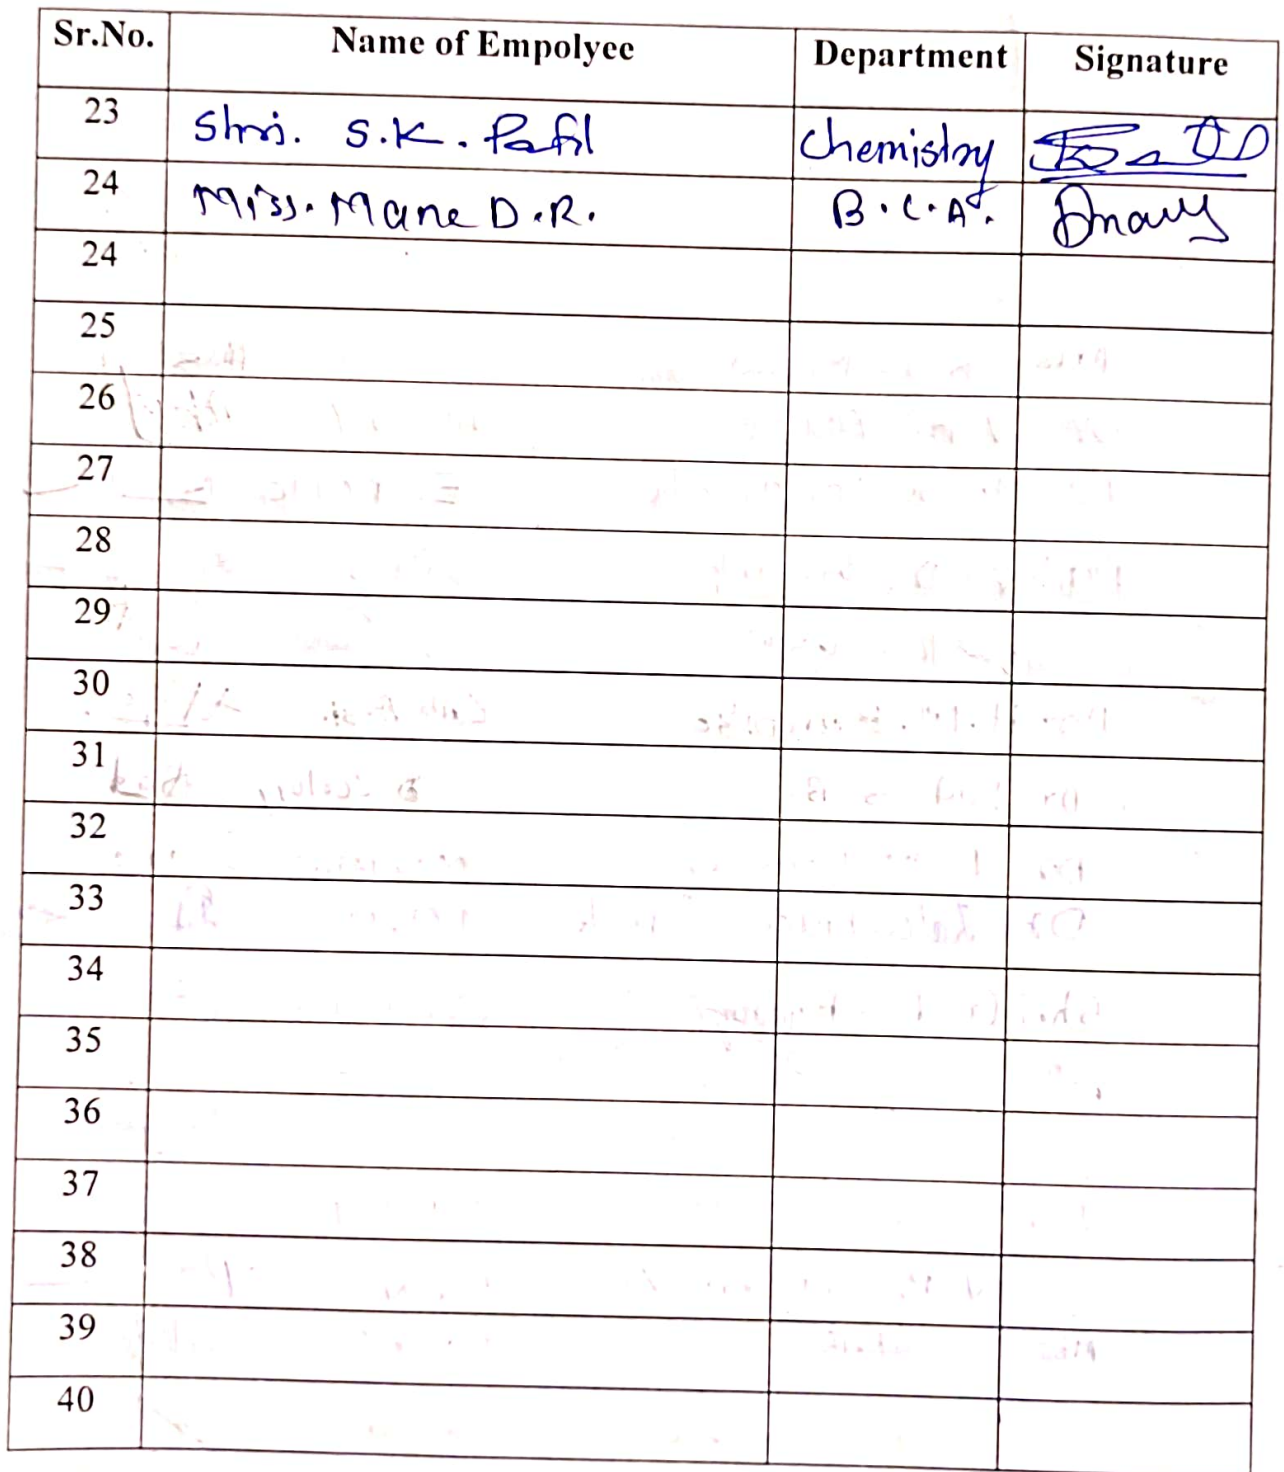 Sr.No. Name of Empolyee Department Signature
23 Shri. S.K. Patil Chemistry
24 Miss. Mane D.R. B.C.A.
24
25
26
27
28
29
30
31
32
33
34
35
36
37
38
39
40